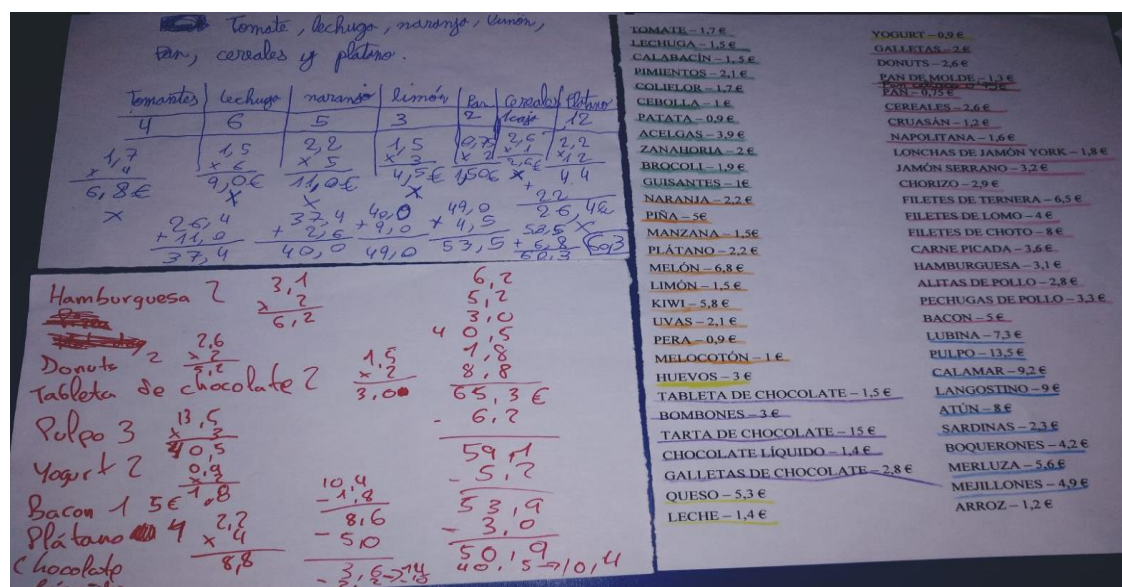 Tomate, lechuga, naranja, limón,
Pan, cereales y platano.
Tomantes lechuga naranja limón Pan cereales Platano
4 6 5 3 2 1caja 12
1,7 1,5 2,2 1,5 0,75 2,6 2,2
x 4 x 6 x 5 x 3 x 2 x 1 x 12
6,8€ 9,0€ 11,0€ 4,5€ 1,50€ 2,6€ 4 4
+ 2 2
26,4€
26,4 37,4 40,0 49,0 53,5
+ 11,0 + 2,6 + 9,0 + 4,5 + 6,8
37,4 40,0 49,0 53,5 60,3 60,3
Hamburguesa 2 3,1 6,2
x 2 5,2
6,2 3,0
2,6 4 0,5
Donuts 2 x 2 1,5 1,8
5,2 x 2 8,8
Tableta de chocolate 2 3,0 65,3€
13,5 - 6,2
Pulpo 3 x 3 59,1
40,5 - 5,2
Yogurt 2 0,9 10,4 53,9
x 2 - 1,8 - 3,0
1,8 8,6 50,9
Bacon 1 5€ - 5,0 40,5→10,4
Plátano 4 2,2 3,6
x 4
8,8
Chocolate
TOMATE – 1,7 €
LECHUGA – 1,5 €
CALABACÍN – 1,5 €
PIMIENTOS – 2,1 €
COLIFLOR – 1,7 €
CEBOLLA – 1 €
PATATA – 0,9 €
ACELGAS – 3,9 €
ZANAHORIA – 2 €
BROCOLI – 1,9 €
GUISANTES – 1€
NARANJA – 2,2 €
PIÑA – 5€
MANZANA – 1,5€
PLÁTANO – 2,2 €
MELÓN – 6,8 €
LIMÓN – 1,5 €
KIWI – 5,8 €
UVAS – 2,1 €
PERA – 0,9 €
MELOCOTÓN – 1 €
HUEVOS – 3 €
TABLETA DE CHOCOLATE – 1,5 €
BOMBONES – 3 €
TARTA DE CHOCOLATE – 15 €
CHOCOLATE LÍQUIDO – 1,4 €
GALLETAS DE CHOCOLATE – 2,8 €
QUESO – 5,3 €
LECHE – 1,4 €
YOGURT – 0,9 €
GALLETAS – 2 €
DONUTS – 2,6 €
PAN DE MOLDE – 1,3 €
PAN – 0,75 €
CEREALES – 2,6 €
CRUASÁN – 1,2 €
NAPOLITANA – 1,6 €
LONCHAS DE JAMÓN YORK – 1,8 €
JAMÓN SERRANO – 3,2 €
CHORIZO – 2,9 €
FILETES DE TERNERA – 6,5 €
FILETES DE LOMO – 4 €
FILETES DE CHOTO – 8 €
CARNE PICADA – 3,6 €
HAMBURGUESA – 3,1 €
ALITAS DE POLLO – 2,8 €
PECHUGAS DE POLLO – 3,3 €
BACON – 5 €
LUBINA – 7,3 €
PULPO – 13,5 €
CALAMAR – 9,2 €
LANGOSTINO – 9 €
ATÚN – 8 €
SARDINAS – 2,3 €
BOQUERONES – 4,2 €
MERLUZA – 5,6 €
MEJILLONES – 4,9 €
ARROZ – 1,2 €